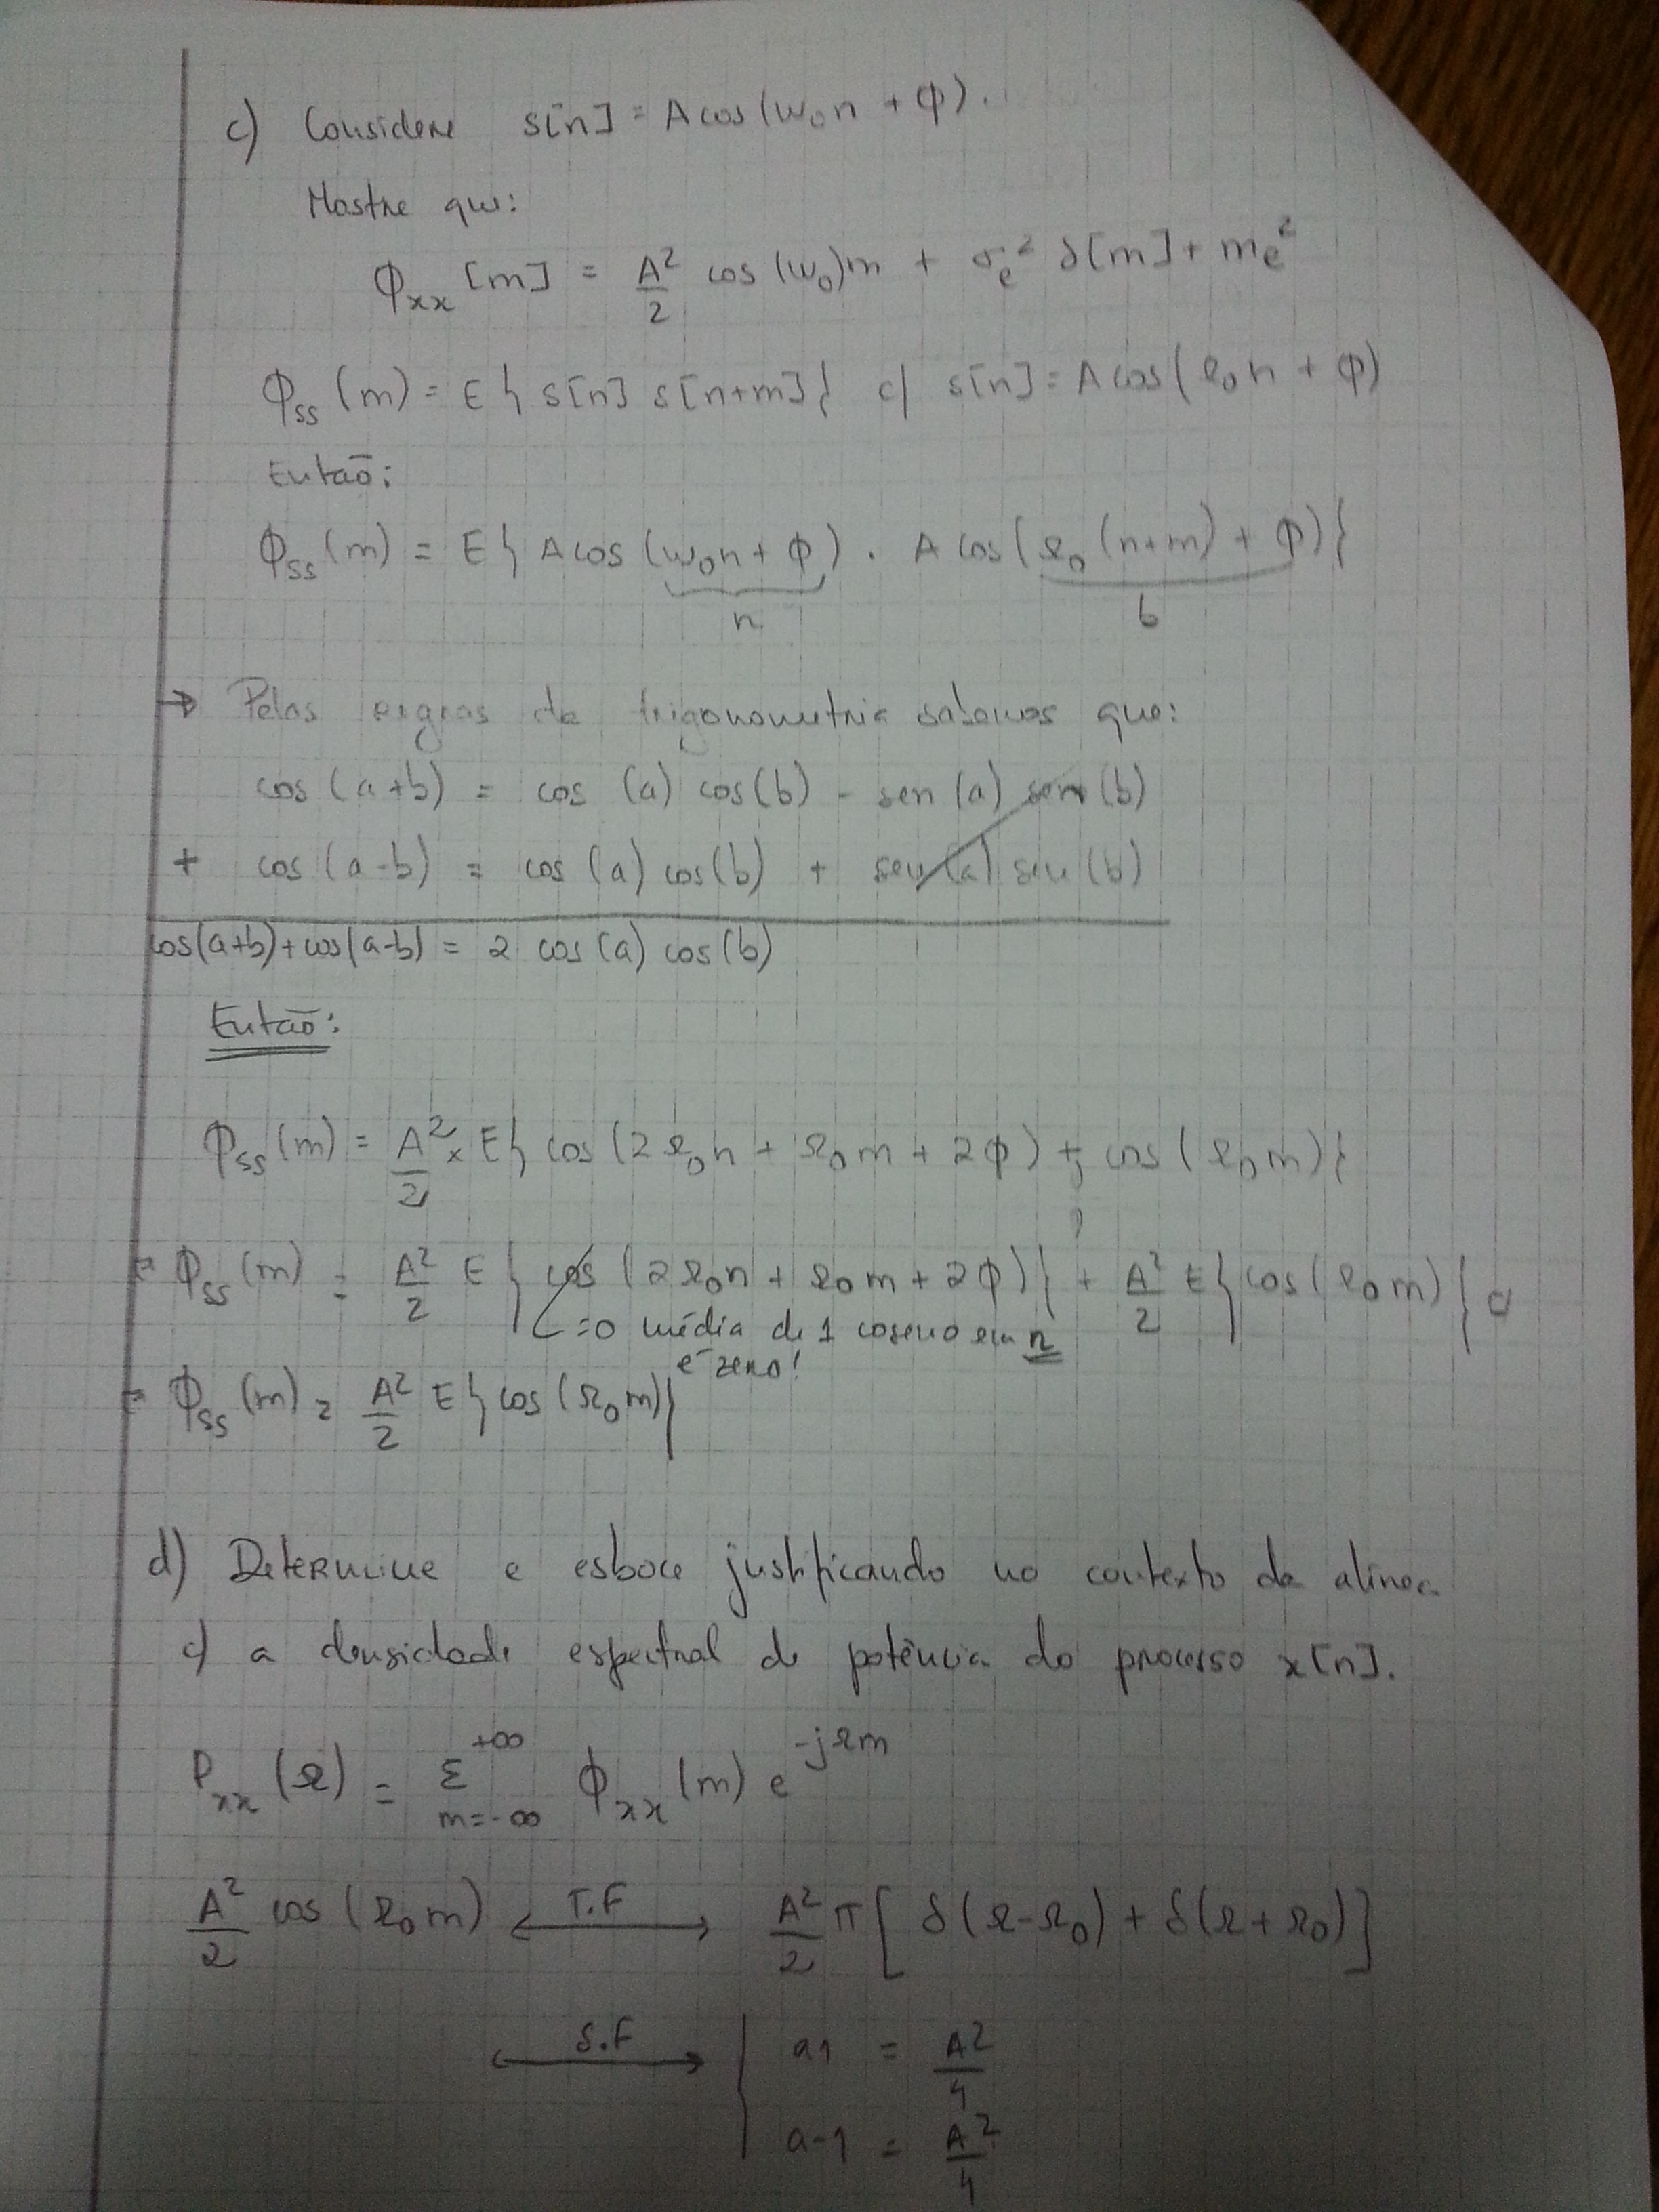 c) Considere s[n] = A cos(ω₀n + φ).
Mostre que:
φxx[m] = A²/2 cos(ω₀)m + σe² δ[m] + me²
φss(m) = E{ s[n] s[n+m] } c/ s[n] = A cos(Ω₀n + φ)
Então:
φss(m) = E{ A cos(ω₀n + φ) . A cos(Ω₀(n+m) + φ) }
n b
→ Pelas regras da trigonometria sabemos que:
cos(a+b) = cos(a) cos(b) - sen(a) sen(b)
+ cos(a-b) = cos(a) cos(b) + sen(a) sen(b)
cos(a+b)+cos(a-b) = 2 cos(a) cos(b)
Então:
φss(m) = A²/2 × E{ cos(2Ω₀n + Ω₀m + 2φ) + cos(Ω₀m) }
= φss(m) = A²/2 E{ cos(2Ω₀n + Ω₀m + 2φ) } + A²/2 E{ cos(Ω₀m) }
=0 média de 1 coseno em n
é zero!
= φss(m) = A²/2 E{ cos(Ω₀m) }
d) Determine e esboce justificando no contexto da alinea
c) a densidade espectral de potência do processo x[n].
Pxx(Ω) = Σ m=-∞ +∞ φxx(m) e^-jΩm
A²/2 cos(Ω₀m) ←T.F→ A²/2 π[ δ(Ω-Ω₀) + δ(Ω+Ω₀) ]
←S.F→ { a1 = A²/4
a-1 = A²/4